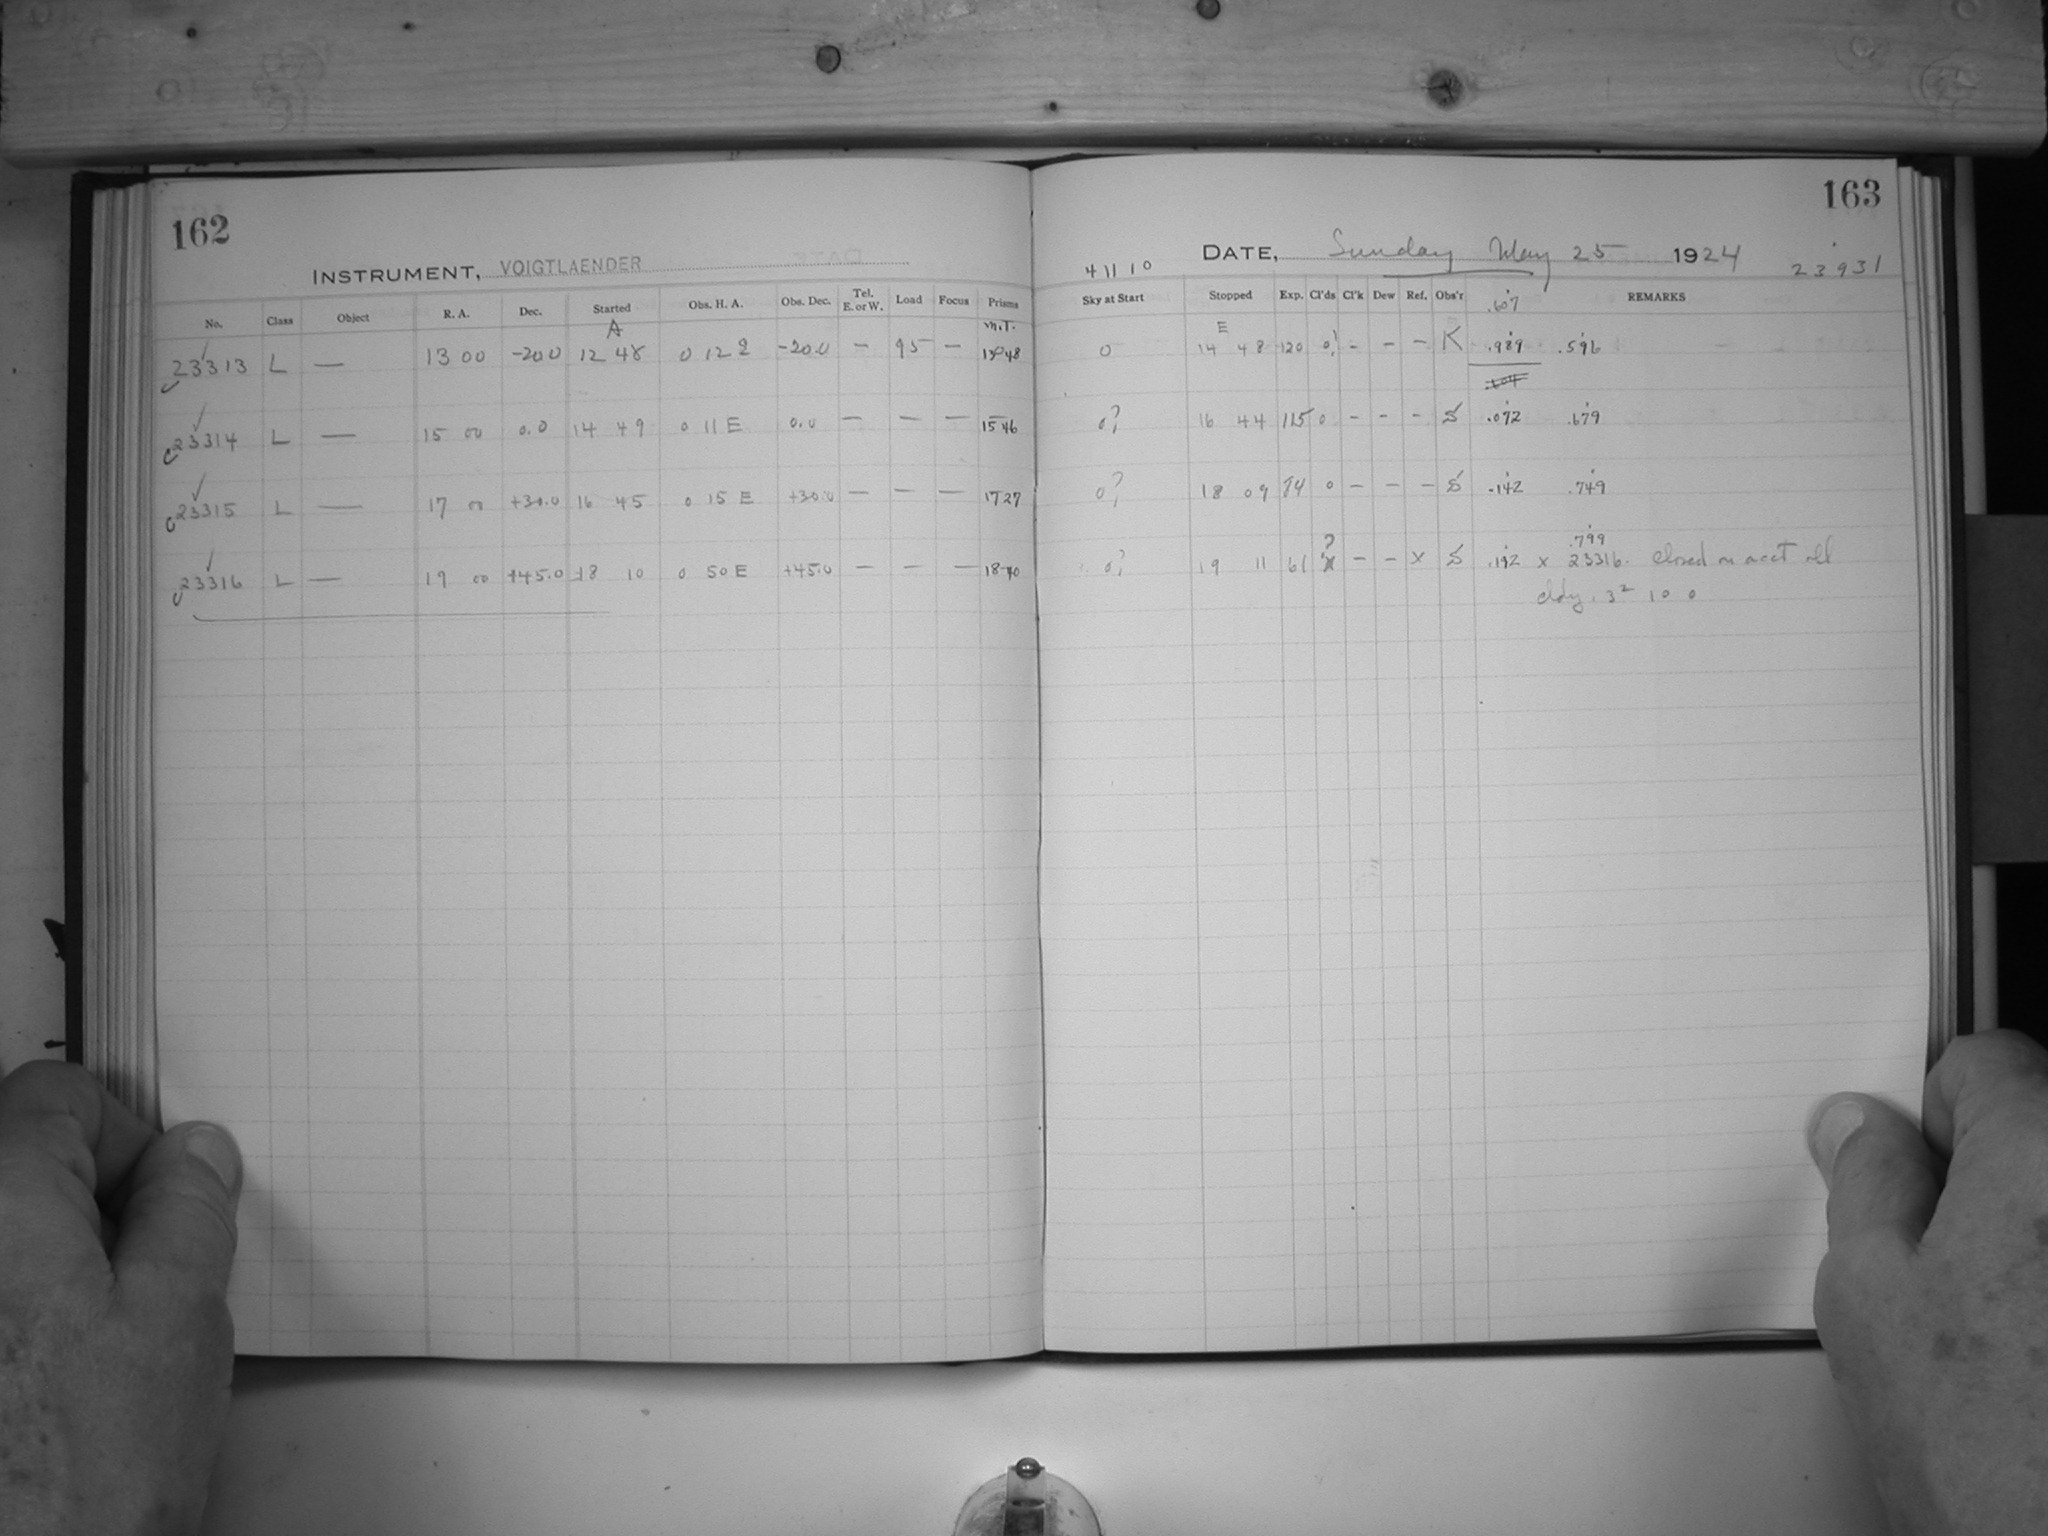 162
INSTRUMENT, VOIGTLAENDER
No. Class Object R. A. Dec. Started Obs. H. A. Obs. Dec. Tel. E. or W. Load Focus Prisms
A M.T.
23313 L — 13 00 -20.0 12 48 0 12 -20.0 — 95 — 1348
23314 L — 15 00 0.0 14 49 0 11 E 0.0 — — — 1546
23315 L — 17 00 +30.0 16 45 0 15 E +30.0 — — — 1727
23316 L — 19 00 +45.0 18 10 0 50 E +45.0 — — — 1840
163
DATE, Sunday May 25 1924
41110 23931
Sky at Start Stopped Exp. Cl'ds Cl'k Dew Ref. Obs'r REMARKS
.607
E
0 14 48 120 0! - - - K .989 .596
0? 16 44 115 0 - - - S .072 .679
0? 18 09 84 0 - - - S .142 .749
? .799
0? 19 11 61 x - - x S .192 x 23316. closed on acct
cldy. 3² 10 0